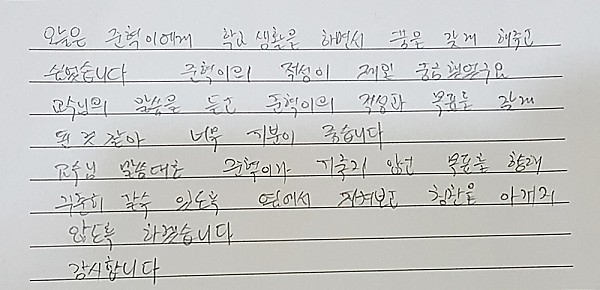 오늘은 준혁이에게 학교생활은 하면서 꿈은 갖게 해주고
싶었습니다 준혁이의 적성이 제일 궁금했었구요
교수님의 말씀을 듣고 준혁이의 적성과 목표를 갖게
된 것 같아 너무 기분이 좋습니다
교수님 말씀대로 준혁이가 지축지 않고 목표를 향해
꾸준히 갈수 있도록 옆에서 지켜보고 칭찬을 아끼지
않도록 하겠습니다
감사합니다